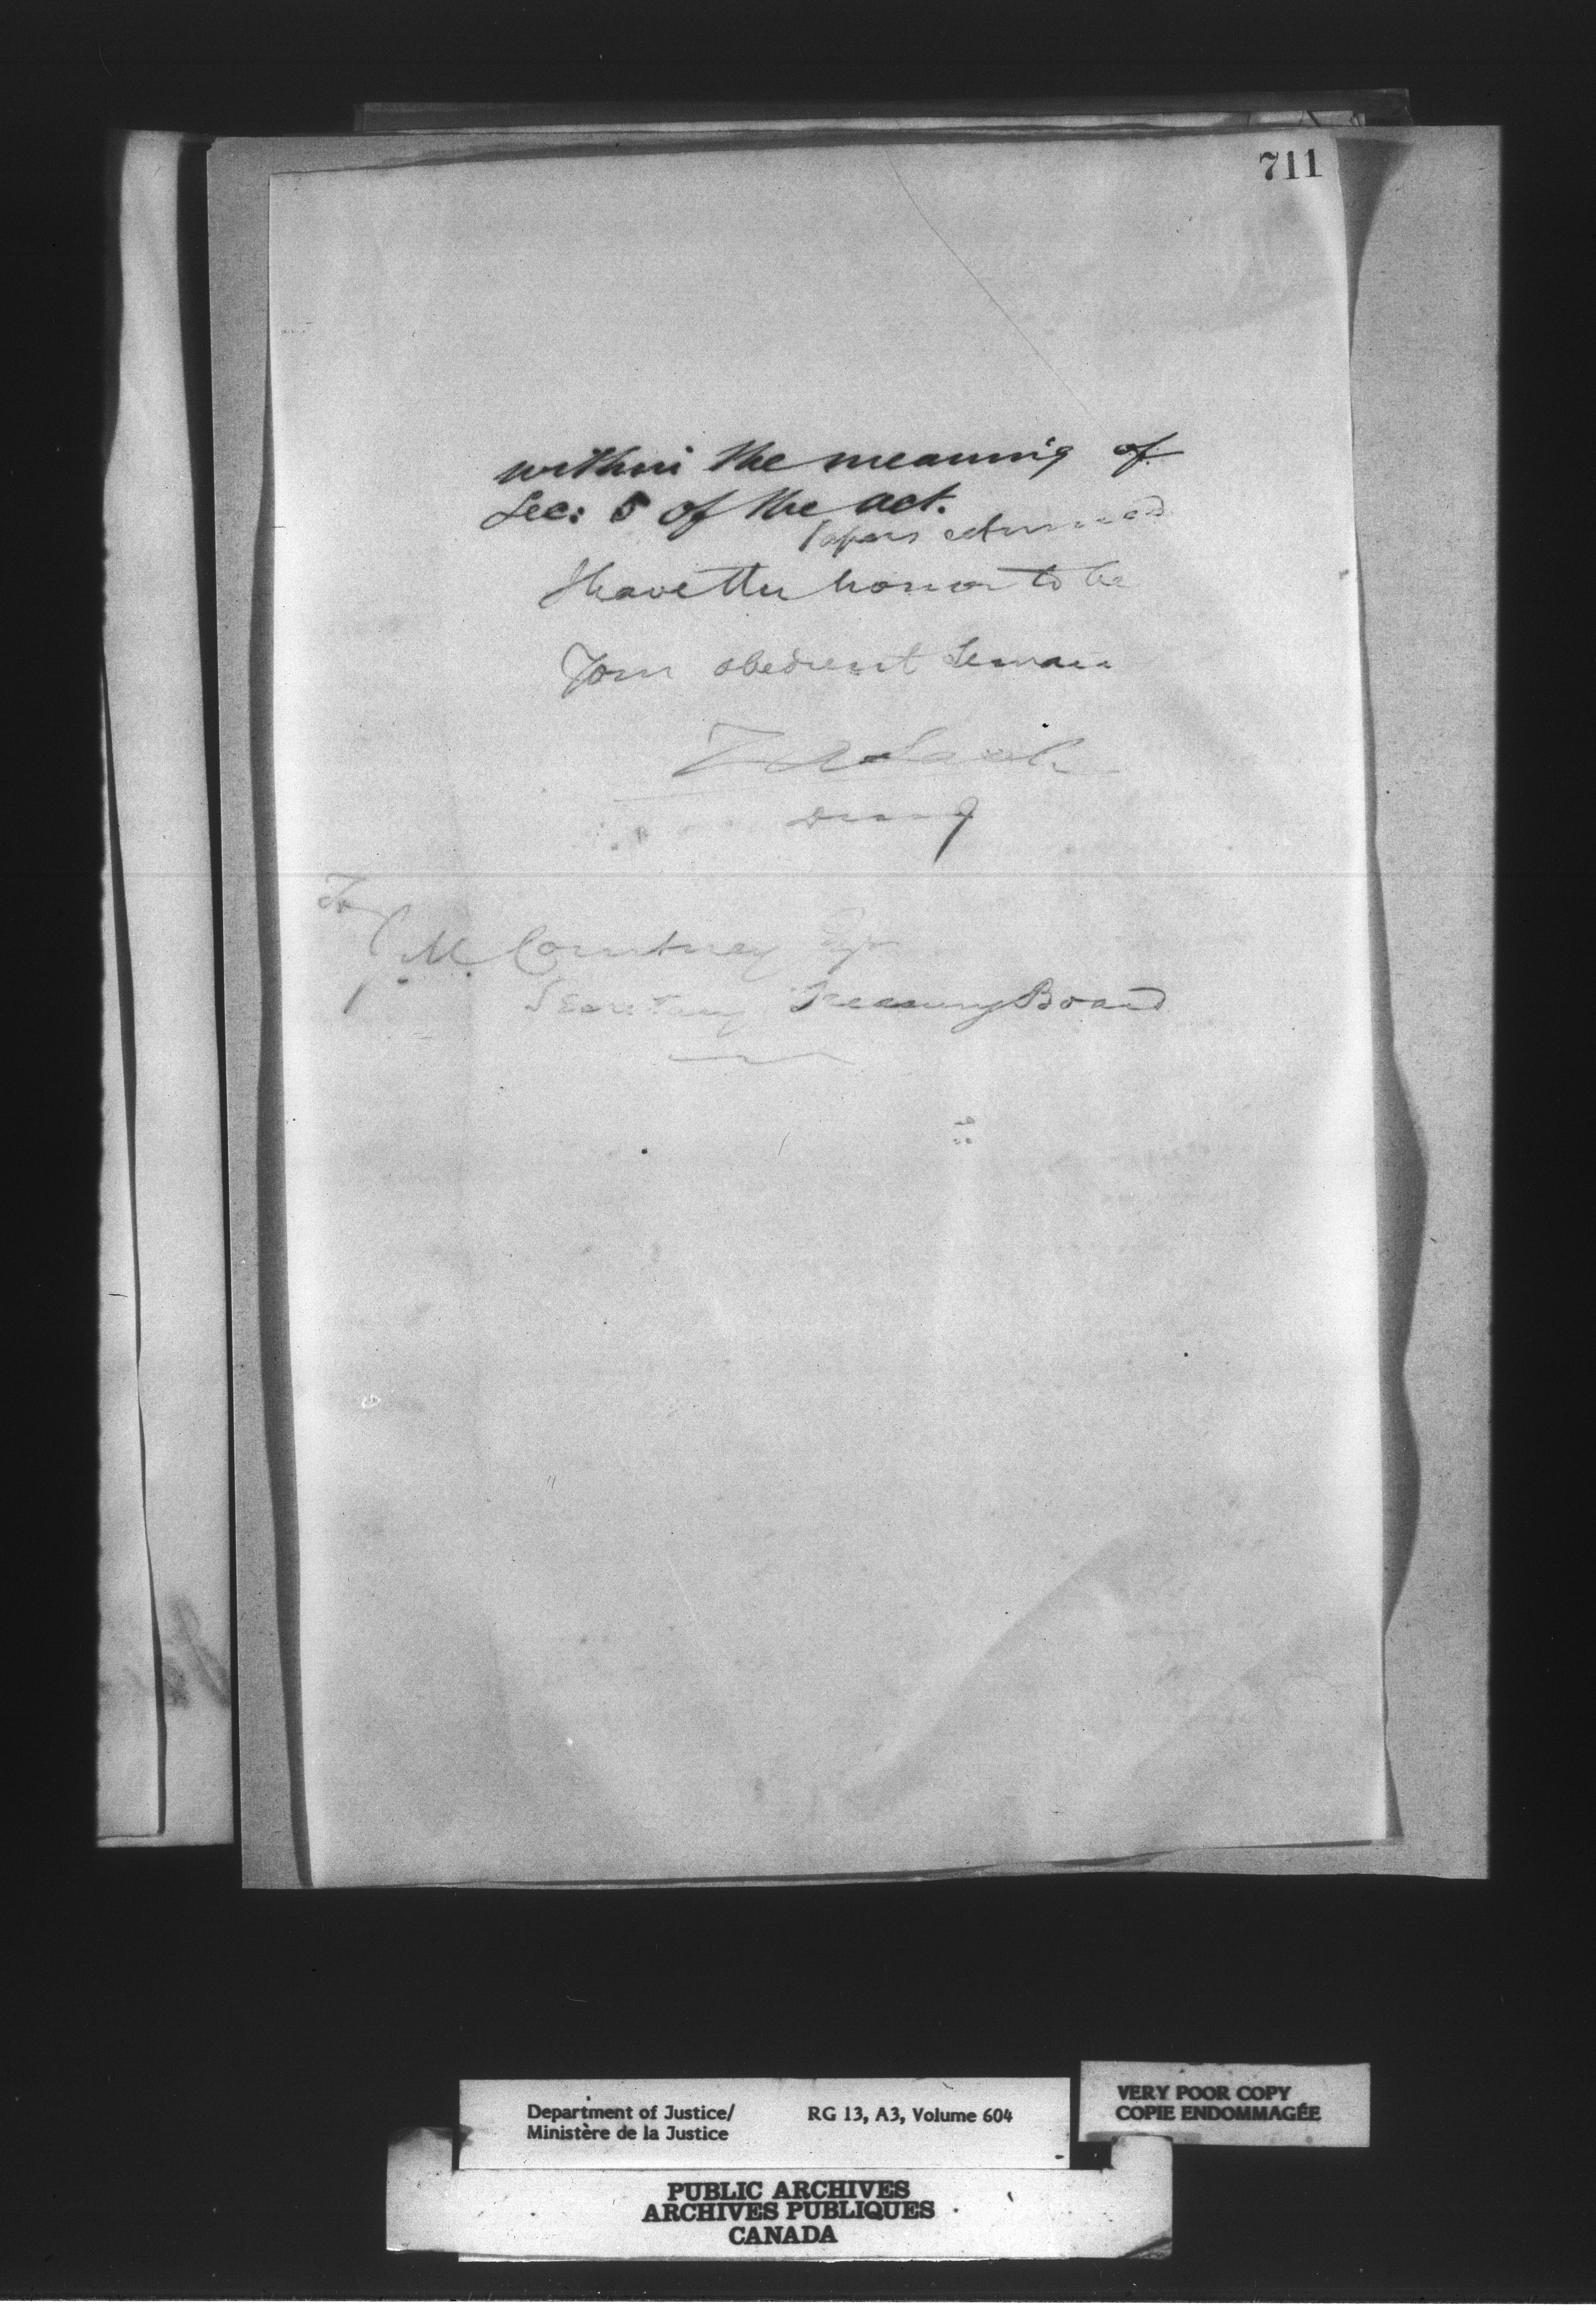 711
within the meaning of
Sec: 5 of the act.
Papers returned
I have the honor to be
Your obedient Servant
Z A Lash
To
J. M. Courtney Esqr
Secretary Treasury Board
Department of Justice/
Ministère de la Justice
RG 13, A3, Volume 604
VERY POOR COPY
COPIE ENDOMMAGÉE
PUBLIC ARCHIVES
ARCHIVES PUBLIQUES
CANADA